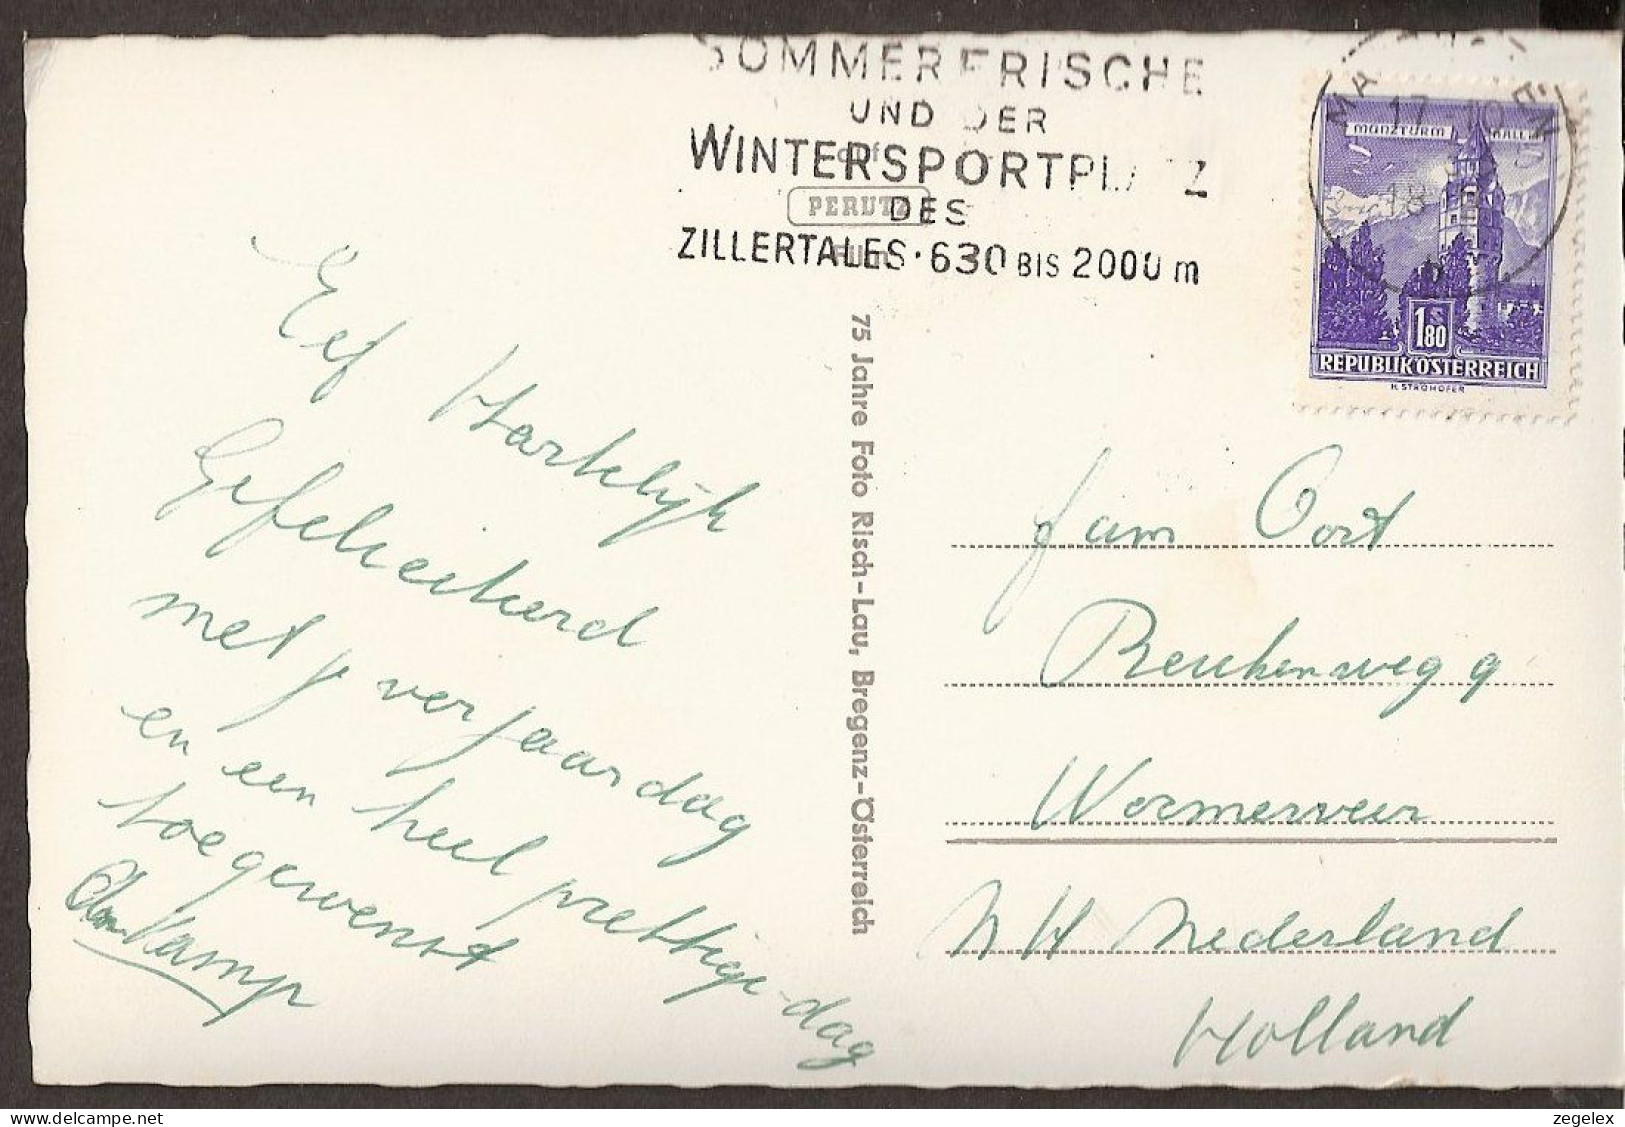 SOMMERFRISCHE
UND DER
WINTERSPORTPLATZ
DES
ZILLERTALES · 630 BIS 2000 m
auf
PERUTZ
MÜNZTURM HALL
1.80
S
REPUBLIK ÖSTERREICH
H. STROHOFER
75 Jahre Foto Risch-Lau, Bregenz-Österreich
Eef Hartelijk
Gefeliciteerd
met je verjaardag
en een heel prettige dag
toegewenst
Kamp
fam Oort
9
Wormerveer
NH Nederland
Holland
www.delcampe.net
zegelex